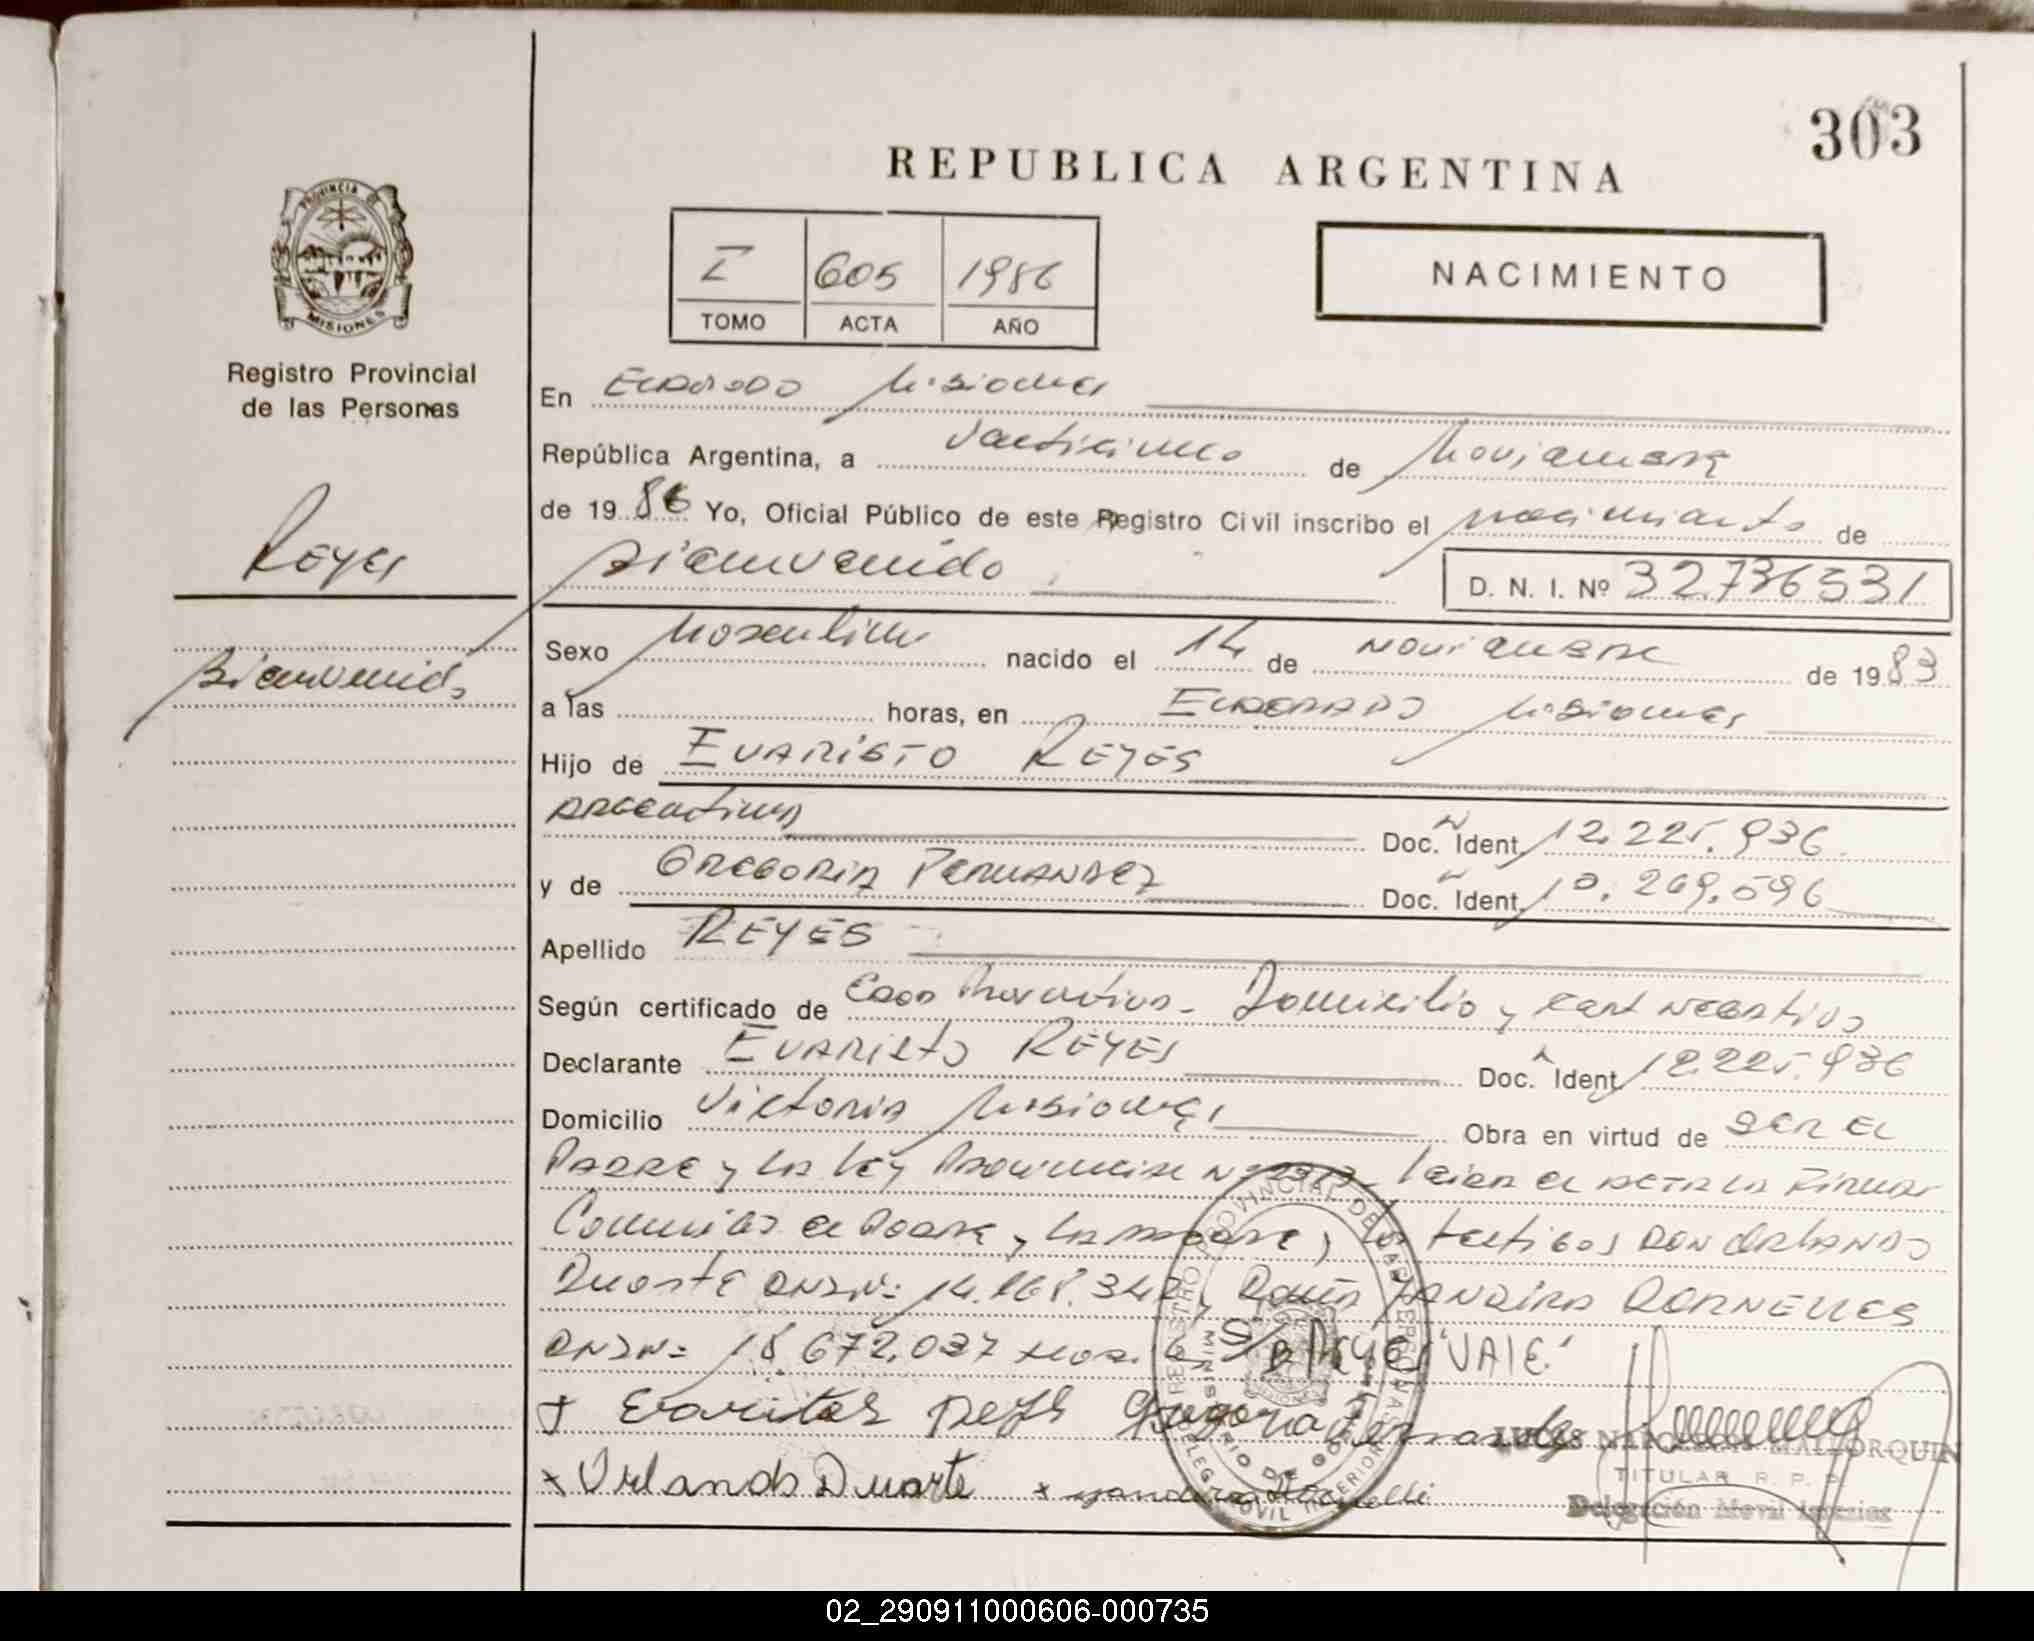 303
REPUBLICA ARGENTINA
PROVINCIA DE MISIONES
I 605 1986
TOMO ACTA AÑO
NACIMIENTO
Registro Provincial
de las Personas
Reyes
Bienvenido
En Eldorado Misiones
República Argentina, a Veinticinco de Noviembre
de 1986 Yo, Oficial Público de este Registro Civil inscribo el nacimiento de
Bienvenido D. N. I. Nº 32.736531
Sexo Masculino nacido el 14 de Noviembre de 1983
a las horas, en Eldorado Misiones
Hijo de EVARISTO REYES
Argentina Doc. N Ident. 12.225.936
y de GREGORIA FERNANDEZ Doc. N Ident. 10.269.596
Apellido REYES
Según certificado de Domicilio y Negativo
Declarante EVARISTO REYES Doc. N Ident. 12.225.936
Domicilio Victoria Misiones Obra en virtud de SER EL
PADRE y la Ley Leida el acta la Firman
el Padre, la madre, los testigos DON ORLANDO
Duarte DNI Nº 14.168.342, Doña YANDIRA DORNELLES
DNI Nº 18.672.037 S/R Reyes "VALE"
+ Gregoria Fernandez
+ Orlando Duarte +
REGISTRO PROVINCIAL DE LAS PERSONAS
MINISTERIO DE GOBIERNO
MALLORQUIN
TITULAR R. P. P.
Delegación Movil
02_290911000606-000735